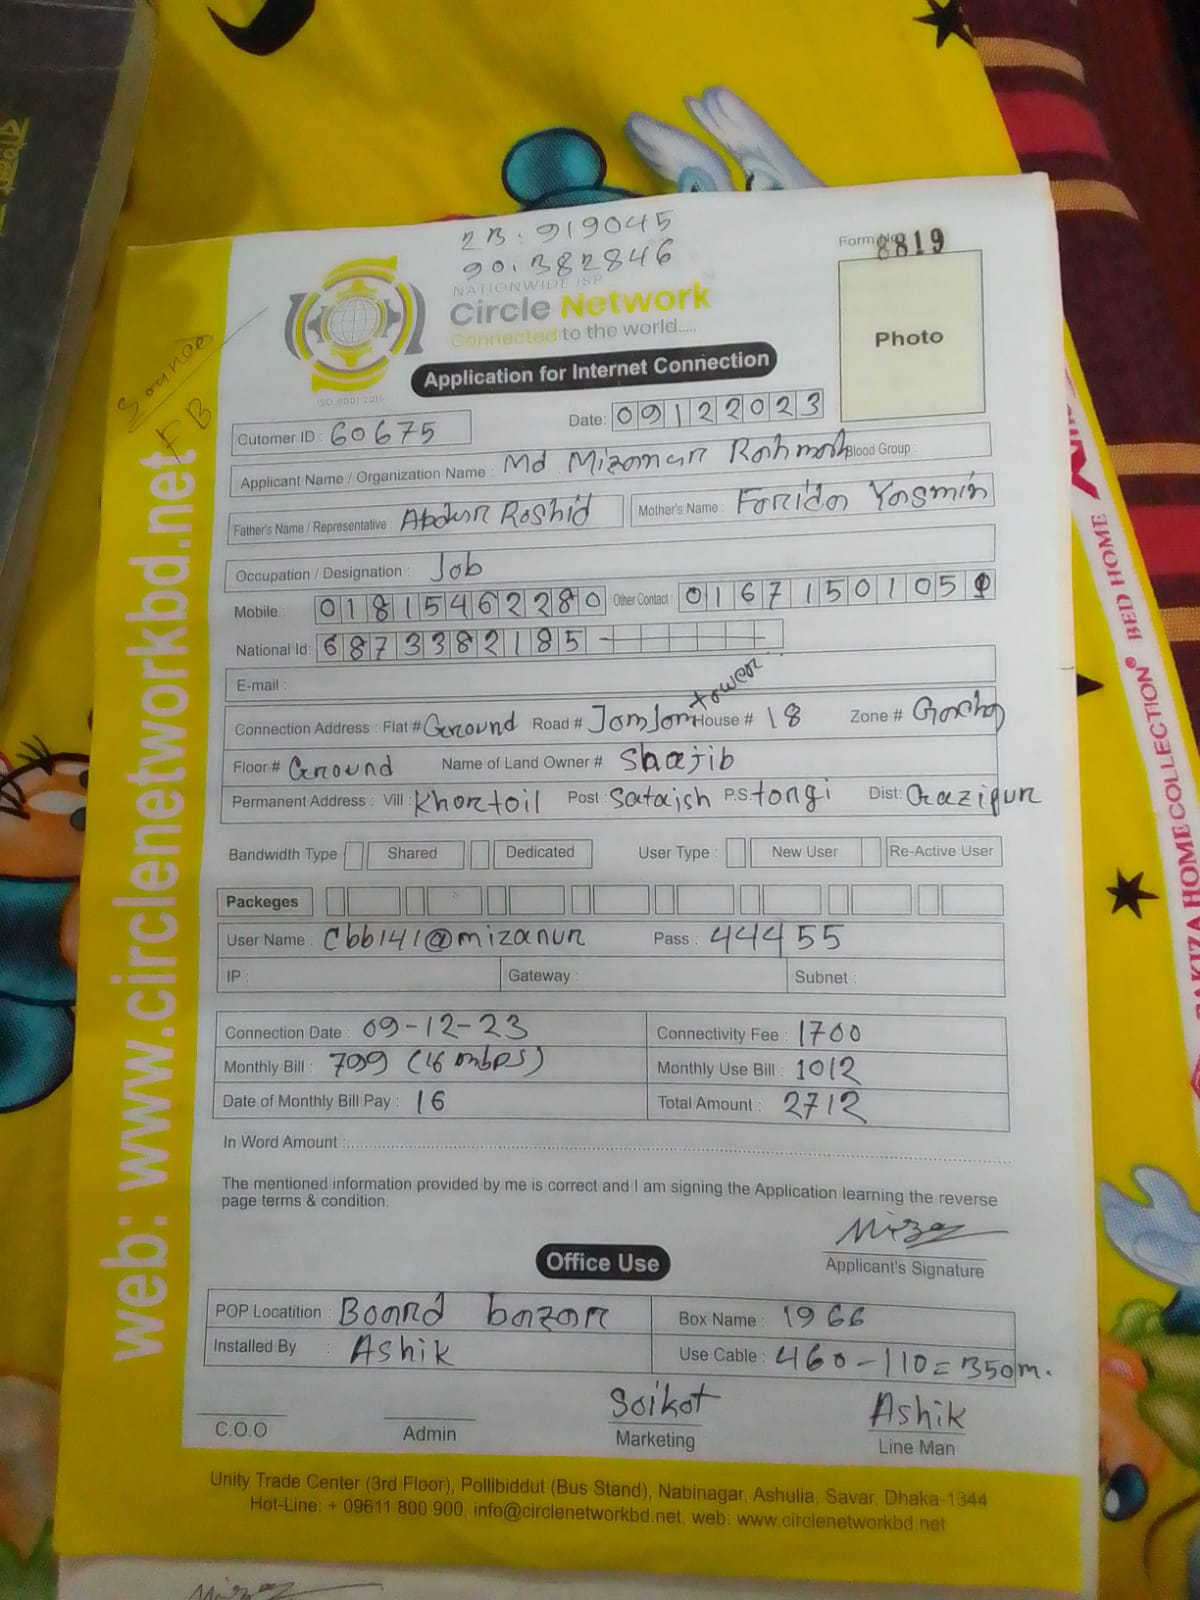 2B. 919045
90. 382846
Form No 8819
NATIONWIDE ISP
Circle Network
Connected to the world.....
ISO 9001:2015
Photo
Application for Internet Connection
Sounce
FB
Date: 09122023
Cutomer ID : 60675
Applicant Name / Organization Name : Md Mizanur Rahman Blood Group :
Father's Name / Representative : Abdur Rashid Mother's Name : Farida Yasmin
Occupation / Designation : Job
Mobile : 01815462280 Other Contact : 0167150105
National Id: 6873382185
E-mail :
tower
Connection Address : Flat # Ground Road # JamJam House # 18 Zone # Gacha
Floor # Ground Name of Land Owner # Shajib
Permanent Address : Vill : Khartoil Post : Sataish P.S. tongi Dist: Gazipur
Bandwidth Type Shared Dedicated User Type : New User Re-Active User
Packeges
User Name : Cbb141@mizanur Pass : 44455
IP : Gateway : Subnet :
Connection Date : 09-12-23 Connectivity Fee : 1700
Monthly Bill : 799 (16 mbps) Monthly Use Bill : 1012
Date of Monthly Bill Pay : 16 Total Amount : 2712
In Word Amount :
The mentioned information provided by me is correct and I am signing the Application learning the reverse
page terms & condition.
Mizan
Applicant's Signature
Office Use
POP Locatition : Board bazar Box Name : 1966
Installed By : Ashik Use Cable : 460-110=350m.
Soikot Ashik
C.O.O Admin Marketing Line Man
Unity Trade Center (3rd Floor), Pollibiddut (Bus Stand), Nabinagar, Ashulia, Savar, Dhaka-1344
Hot-Line: + 09611 800 900, info@circlenetworkbd.net, web: www.circlenetworkbd.net
web: www.circlenetworkbd.net
HOME COLLECTION® BED HOME